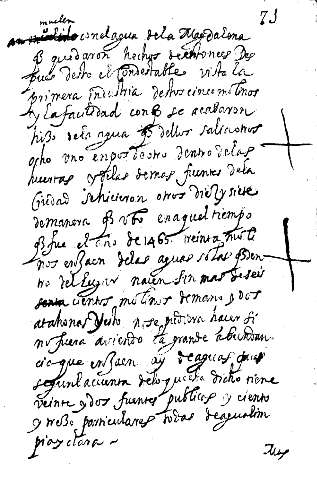 73
muelen
con el agua de la Magdalena
q quedaron hechos de entonces Des
pues desto el condestable vista la
primera industria destos cinco molinos
y la facilidad con q se acabaron
hizo de la agua q dellos salia otros
ocho uno en pos de otro dentro de las
huertas y de las demas fuentes de la
Ciudad se hicieron otros diez y siete
de manera q ubo en aquel tiempo
q fue el año de 1465. treinta moli
nos en Jaen de las aguas solas q den
tro del lugar nacen sin mas de seis
cientos molinos de mano y dos
atahonas y esto no se pudiera hacer si
no fuera aviendo la grande abundan
cia que en Jaen ay de aguas pues
segun la cuenta de lo que esta dicho tiene
veinte y dos fuentes publicas y ciento
y treze particulares todas de agua lim
pia y clara